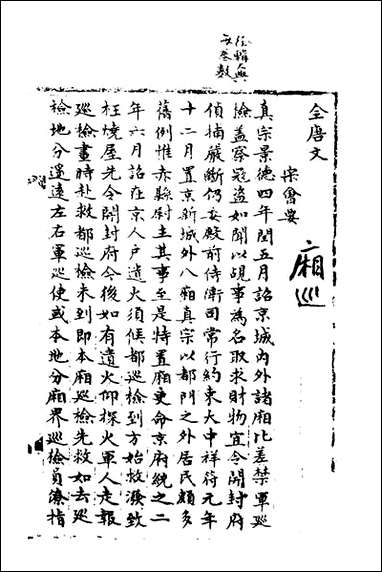 全唐文
宋會要
廂巡
真宗景德四年閏五月詔京城內外諸廂比差禁軍巡
檢蓋察寇盜如聞以覘事為名取求財物宜令開封府
偵捕嚴斷仍委殿前侍衛司常行約束大中祥符元年
十二月置京新城外八廂真宗以都門之外居民頗多
舊例惟赤縣尉主其事至是特置廂吏命京府統之二
年六月詔在京人戶遺火須候都巡檢到方始救潑致
枉燒屋先令開封府今後如有遺火仰探火軍人走報
巡檢畫時赴救都巡檢未到即本廂巡檢先救如去巡
檢地分遙遠左右軍巡使或本地分廂界巡檢員僚指